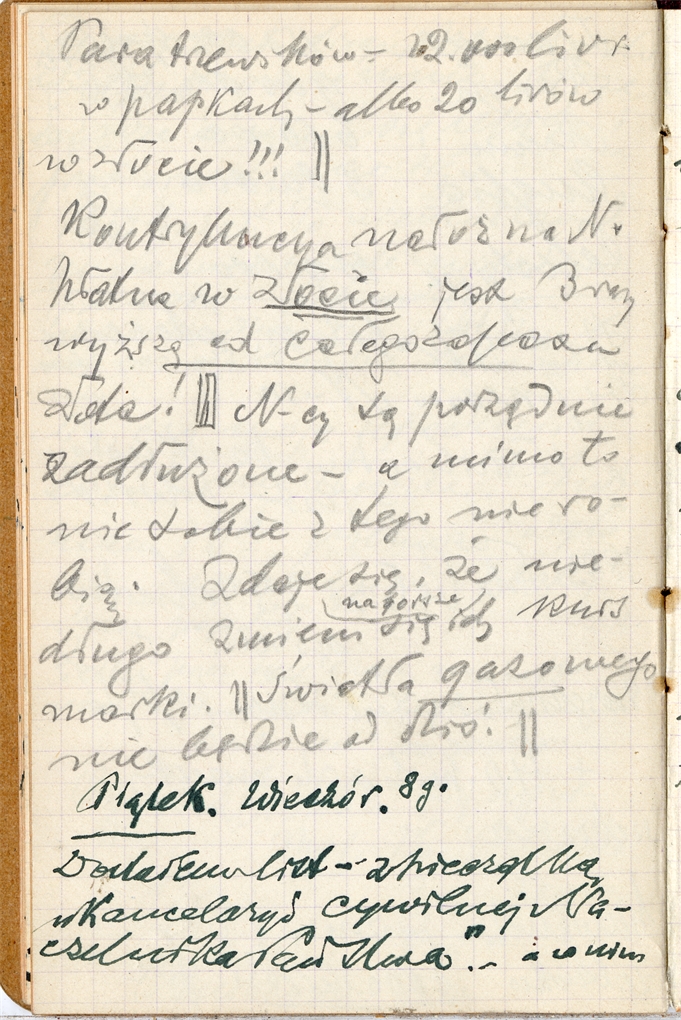 Para trzewików – 22.000 lirów
w papkach – albo 20 lirów
w złocie!!! ||
Kontrybucya nałożna N.
w złocie jest 3 razy
wyższą od całego zapasu
złota! || N-cy są porządnie
zadłużone – a mimo to
nic sobie z tego nie ro-
bią. Zdaje się, że nie-
długo zmieni się ich kurs
na gorsze
marki. || Światła gazowego
nie będzie od dziś. ||
Piątek. Wieczór. 8 g.
Dostałem list – z pieczątką
"Kancelaryi cywilnej Na-
czelnika Państwa". – a w nim